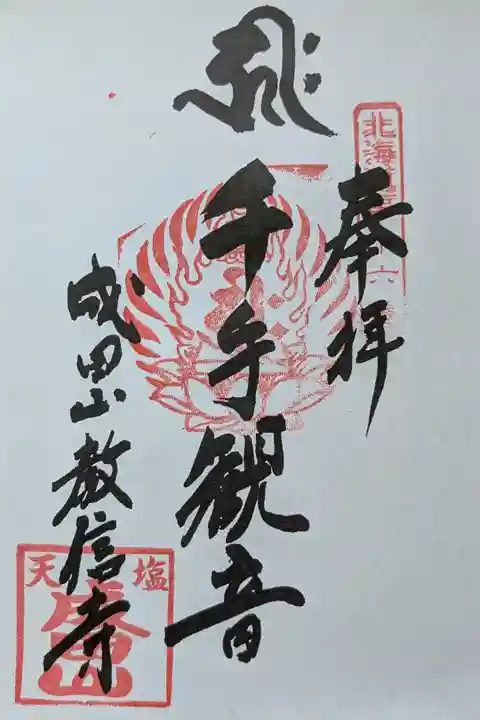 奉拝
千手観音
成田山教信寺
北海
六
天塩
成田山